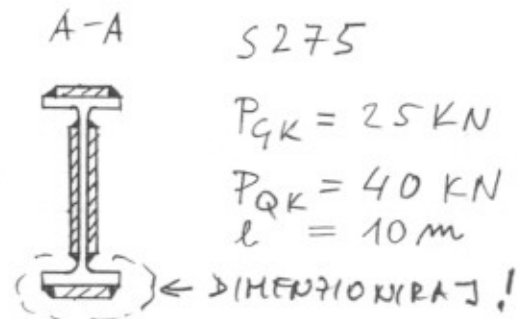 A-A
S275
P_GK = 25 KN
P_QK = 40 KN
l = 10 m
← DIMENZIONIRAJ!